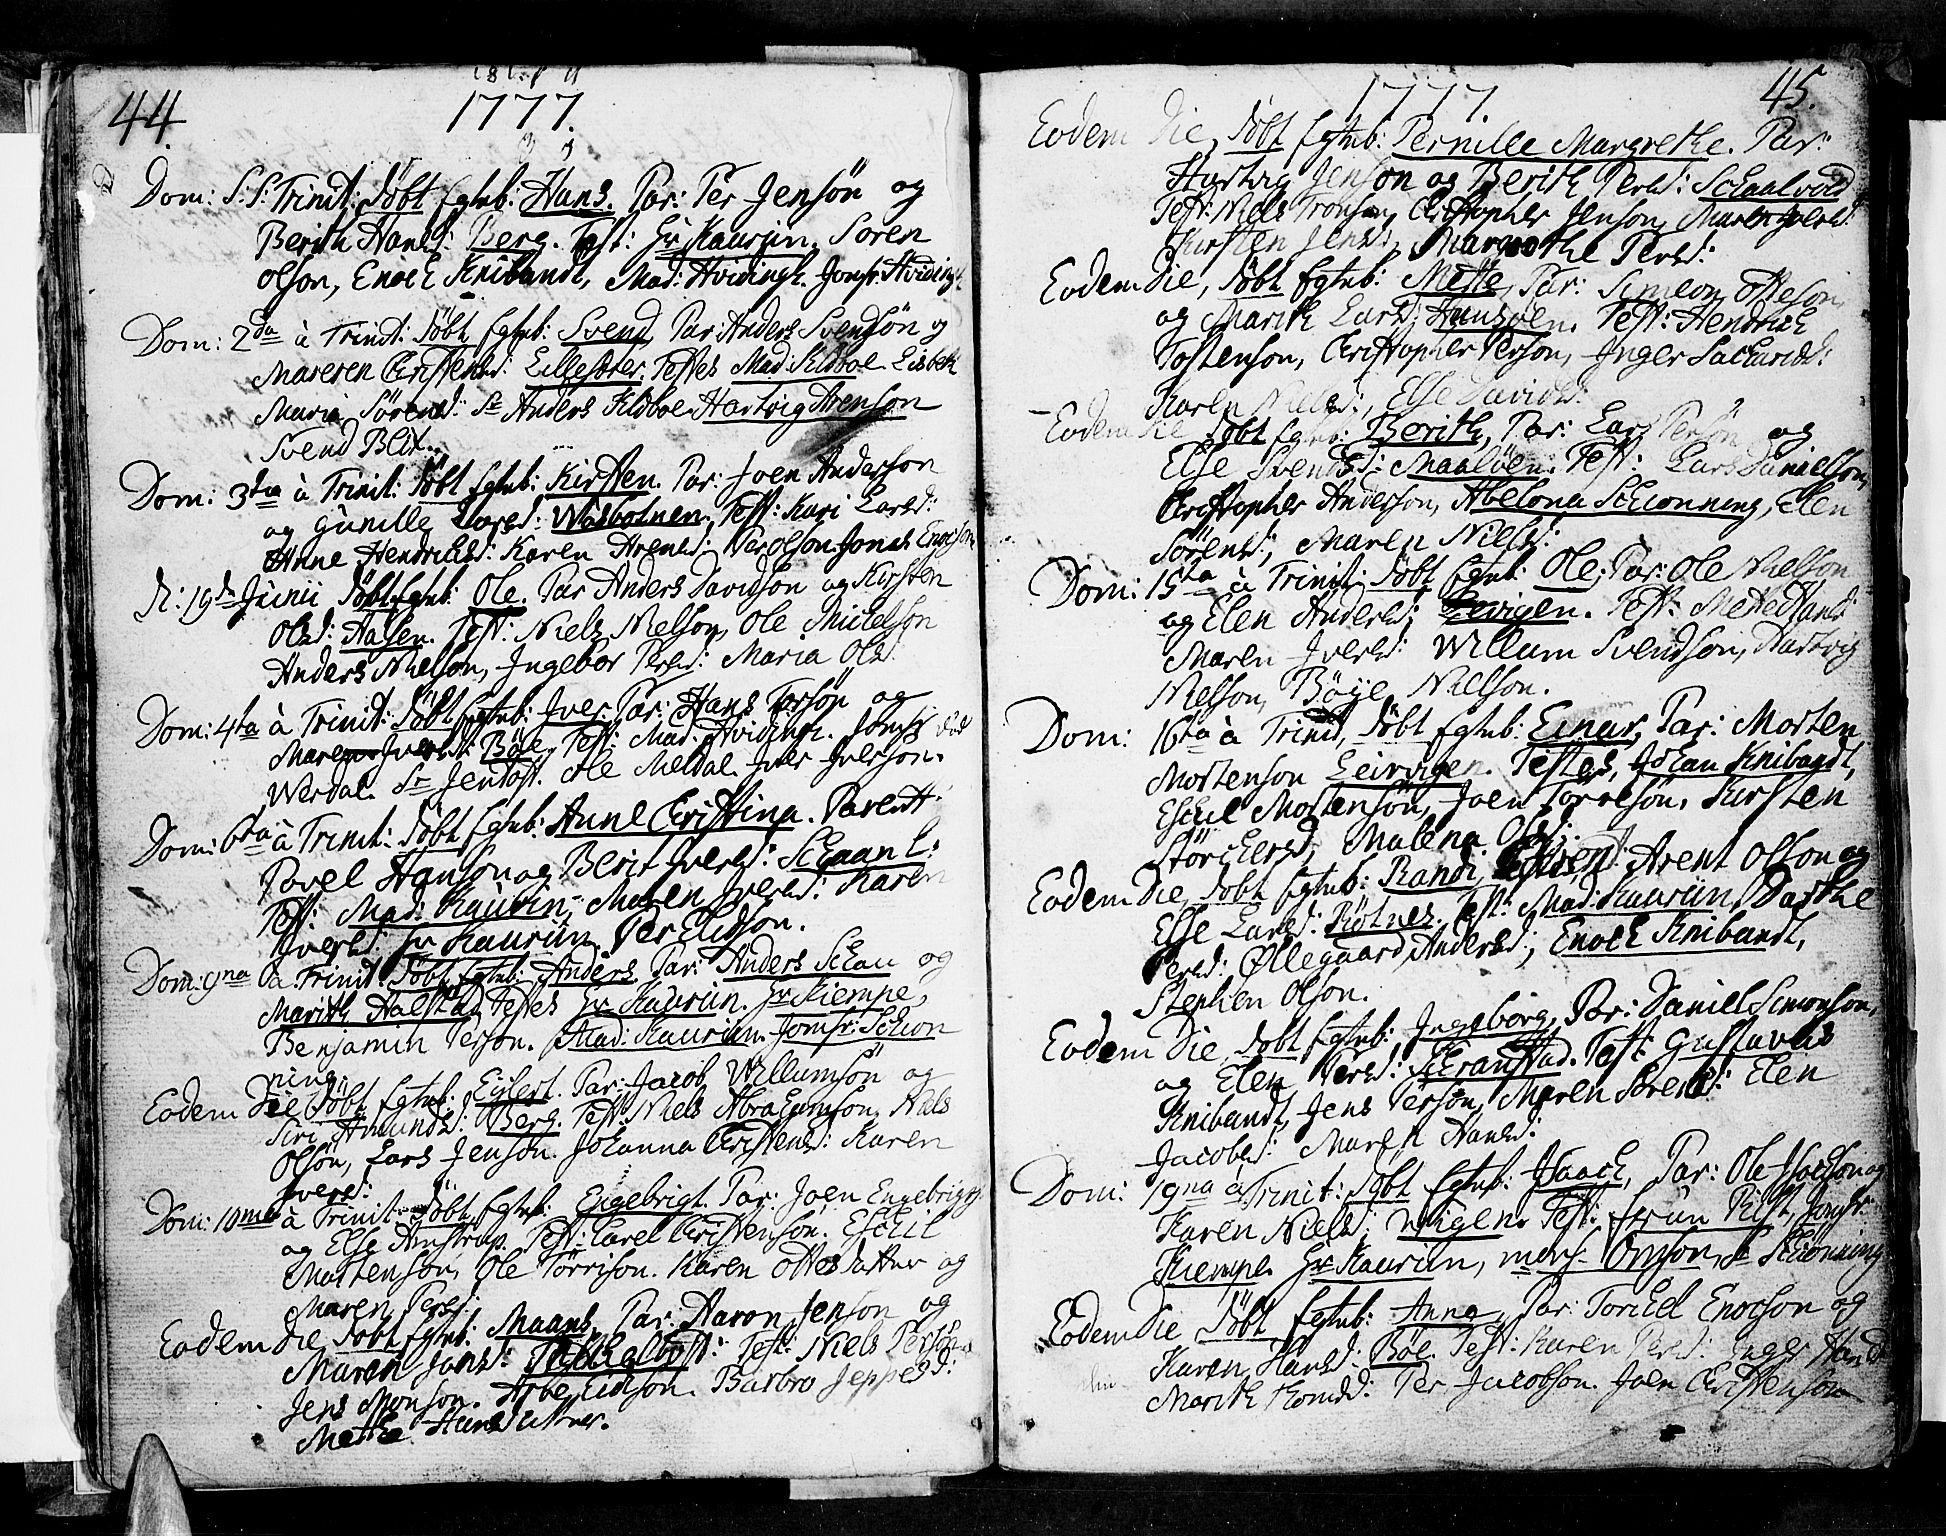 44.
1777.
Dom: S:S: Trinit: Döbt Egtub: Hans. Par: Per Jensön og
Berith Hansd: Berg. Test: Hr Kaurin. Soren
Olson, Enoch Knibandt, Mad: Hvidingk. Jomfr: Hviding
Dom: 2da à Trinit: Döbt Egtub: Svend, Par: Anders Svendsön og
Mareren Christensd: Lillesæter. Testes Mad: Kldboe. Lisbeth
Maria Sörensd: Sr Anders Kldboe. Hartvig Arenson
Svend Blix.
Dom: 3tia à Trinit: Döbt Egtub: Kirsten. Par: Joen Anderson
og Gunille Larsd: Wasbotnen. Test: Kari Larsd:
Anne Hendrichsd: Karen Arensd: Per Olson. Jonas Enocson
D: 19de Junii Döbt Egtub: Ole. Par Anders Davidson og Kirsten
Olsd: Aalsen. Test: Niels Nielson, Ole Michelson
Anders Nielson, Ingebor Persd: Maria Olsd:
Dom: 4ta à Trinit: Döbt Egtub: Iver. Par: Hans Persön og
Maren Iversd: Böe. Test: Mad: Hvidingk. Jomfr
Werdal. Sr Jentoft. Ole Meldal. Iver Iverson.
Dom: 6ta à Trinit: Döbt Egtub: Anne Christina. Parent:
Povel Hanson og Berit Iversd: Schaanl:
Test: Mad: Kaurin, Maren Iversd: Karen
Iversd: Hr Kaurin. Per Elison.
Dom: 9na à Trinit. Döbt Egtub: Anders. Par: Anders Schau og
Marith Halstad, Testes Hr Kaurin. Hr Kiempe,
Benjamin Person. Mad: Kaurin. Jomfr: Schion
ning.
Eodem Die Döbt Egtub: Egilert. Par: Jacob Willumsön og
Siri Amundsd: Berg. Test: Niels Abrahamson, Niels
Olsön, Lars Jenson. Johanna Christensd: Karen
Iversd:
Dom: 10ma à Trinit. Döbt Egtub: Engebrigt. Par: Joen Engebrigts:
og Else Amstrup. Test: Carel Christenson. Eschil
Mortenson, Ole Törrison. Karen Ottesdatter og
Maren Persd:
Eodem Die Döbt Egtub: Maans, Par: Aaron Jenson og
Maren Jonsd: Test: Niels Persön
Jens Monson. Arbe Eidson. Barbro Jeppesd:
Mette Hansdatter.
1777.
45.
Eodem Die, Döbt Egtub: Pernille Margrethe. Par:
Hartvig Jenson og Berith Persd: Schaalvold
Test: Niels Tronson, Christopher Jenson, Maren Iversd:
Kirsten Jensd: Margrethe Persd:
Eodem Die, Döbt Egtub: Mette, Par: Simeon Otteson
og Marith Larsd: Hundsöen. Test: Hendrich
Tostenson, Christopher Person, Inger Sachariæd:
Karen Nielsd:, Else Davidsd:
Eodem Die Döbt Egtub: Berith, Par: Lars Persön og
Else Svendsd: Maalöen. Test: Lars Danielson,
Christopher Anderson, Abelona Schionning, Elen
Sörensd:, Maren Nielsd:
Dom: 15ta à Trinit: Döbt Egtub: Ole, Par: Ole Nielson
og Elen Andersd; Levigen. Test: Mette Hansd:
Maren Iversd: Willum Svendson, Hartvig
Nielson, Böye Nielson.
Dom: 16ta à Trinit, Döbt Egtub: Einar, Par: Morten
Mortenson Leirvigen. Testes, Johan Knibandt,
Eschil Mortensön, Joen Törresön, Kirsten
Störchersd, Malena Olsd:
Eodem Die, Döbt Egtub: Randi, Arent Olson og
Else Larsd: Rötnes. Test: Mad: Kaurin, Dorthe
Persd: Øllegaard Andersd:, Enoch Knibandt,
Stephen Olson.
Eodem Die Döbt Egtub: Ingeborg, Par: Daniel Simonson,
og Elen Persd: Schranstad. Test: Gustavus
Knibandt, Jens Persön, Maren Sörensd: Elen
Jacobsd: Maren Hansd:
Dom: 19na à Trinit: Döbt Egtub: Isaach, Par: Ole Isachson og
Karen Nielsd: Wigen. Test: Frue Rist, Jomfr:
Kiempe. Hr Kaurin, mons: Omson, Sr Schiönning
Eodem Die Döbt Egtub: Anna, Par: Torchel Enocson og
Karen Hansd: Böe. Test: Karen Persd: Inger Hansd
Marith Tomæd: Per Jacobson. Joen Christenson